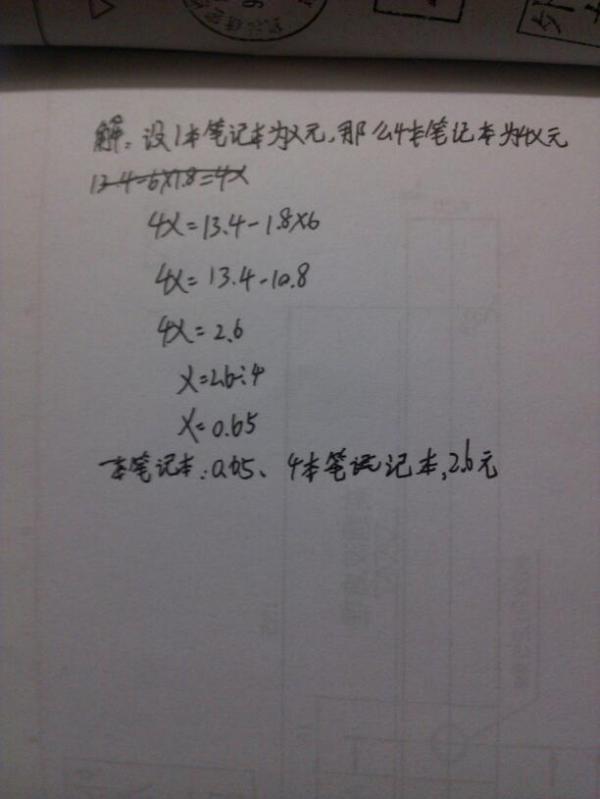 解：设1本笔记本为X元，那么4本笔记本为4X元
13.4-6×1.8=4X
4X=13.4-1.8×6
4X=13.4-10.8
4X=2.6
X=2.6÷4
X=0.65
一本笔记本：0.65、4本笔记本，2.6元